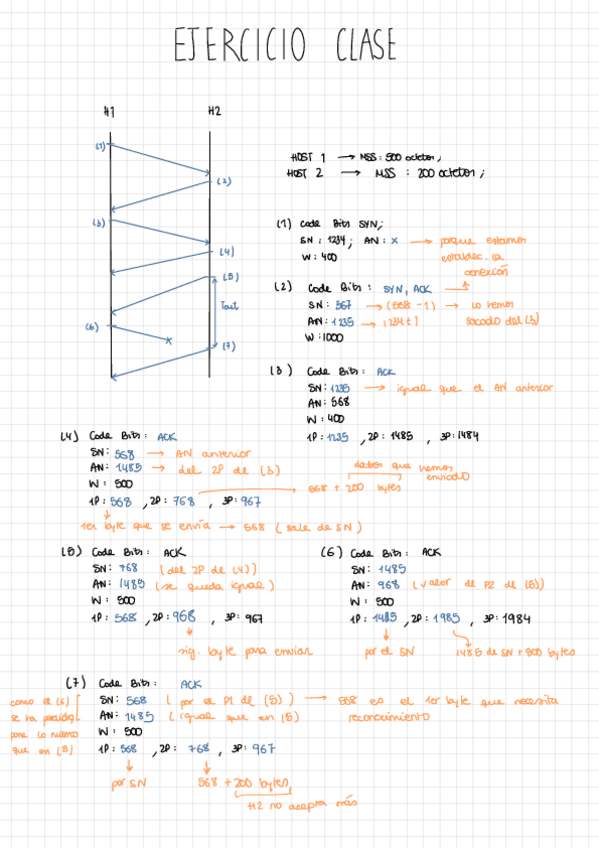 EJERCICIO CLASE
H1 H2
(1)
(2)
(3)
(4)
(5)
Tout
(6)
(7)
HOST 1 → MSS: 500 octetos;
HOST 2 → MSS : 200 octetos;
(1) Code Bits SYN;
SN: 1234; AN: x → porque estamos
W: 400 establec. la
conexión
(2) Code Bits: SYN, ACK
SN: 567 → (568 - 1) → lo hemos
AN: 1235 → 1234+1 sacado del (3)
W: 1000
(3) Code Bits: ACK
SN: 1235 → igual que el AN anterior
AN: 568
W: 400
1P: 1235, 2P: 1485, 3P: 1484
(4) Code Bits: ACK
SN: 568 → AN anterior
AN: 1485 → del 2P de (3)
W: 500
datos que hemos
enviado
568 + 200 bytes
1P: 568, 2P: 768, 3P: 967
1er byte que se envía → 568 (sale de SN)
(5) Code Bits: ACK
SN: 768 (del 2P de (4))
AN: 1485 (se queda igual)
W: 500
1P: 568, 2P: 968, 3P: 967
sig. byte para enviar
(6) Code Bits: ACK
SN: 1485
AN: 968 (valor del P2 del (5))
W: 500
1P: 1485, 2P: 1985, 3P: 1984
por el SN 1485 de SN + 500 bytes
(7) Code Bits: ACK
como el (6)
se ha perdido
pone lo mismo
que en (5)
SN: 568 (por el P1 del (5)) → 568 es el 1er byte que necesita
AN: 1485 (igual que en (5)) reconocimiento
W: 500
1P: 568, 2P: 768, 3P: 967
por SN 568 + 200 bytes
H2 no acepta más